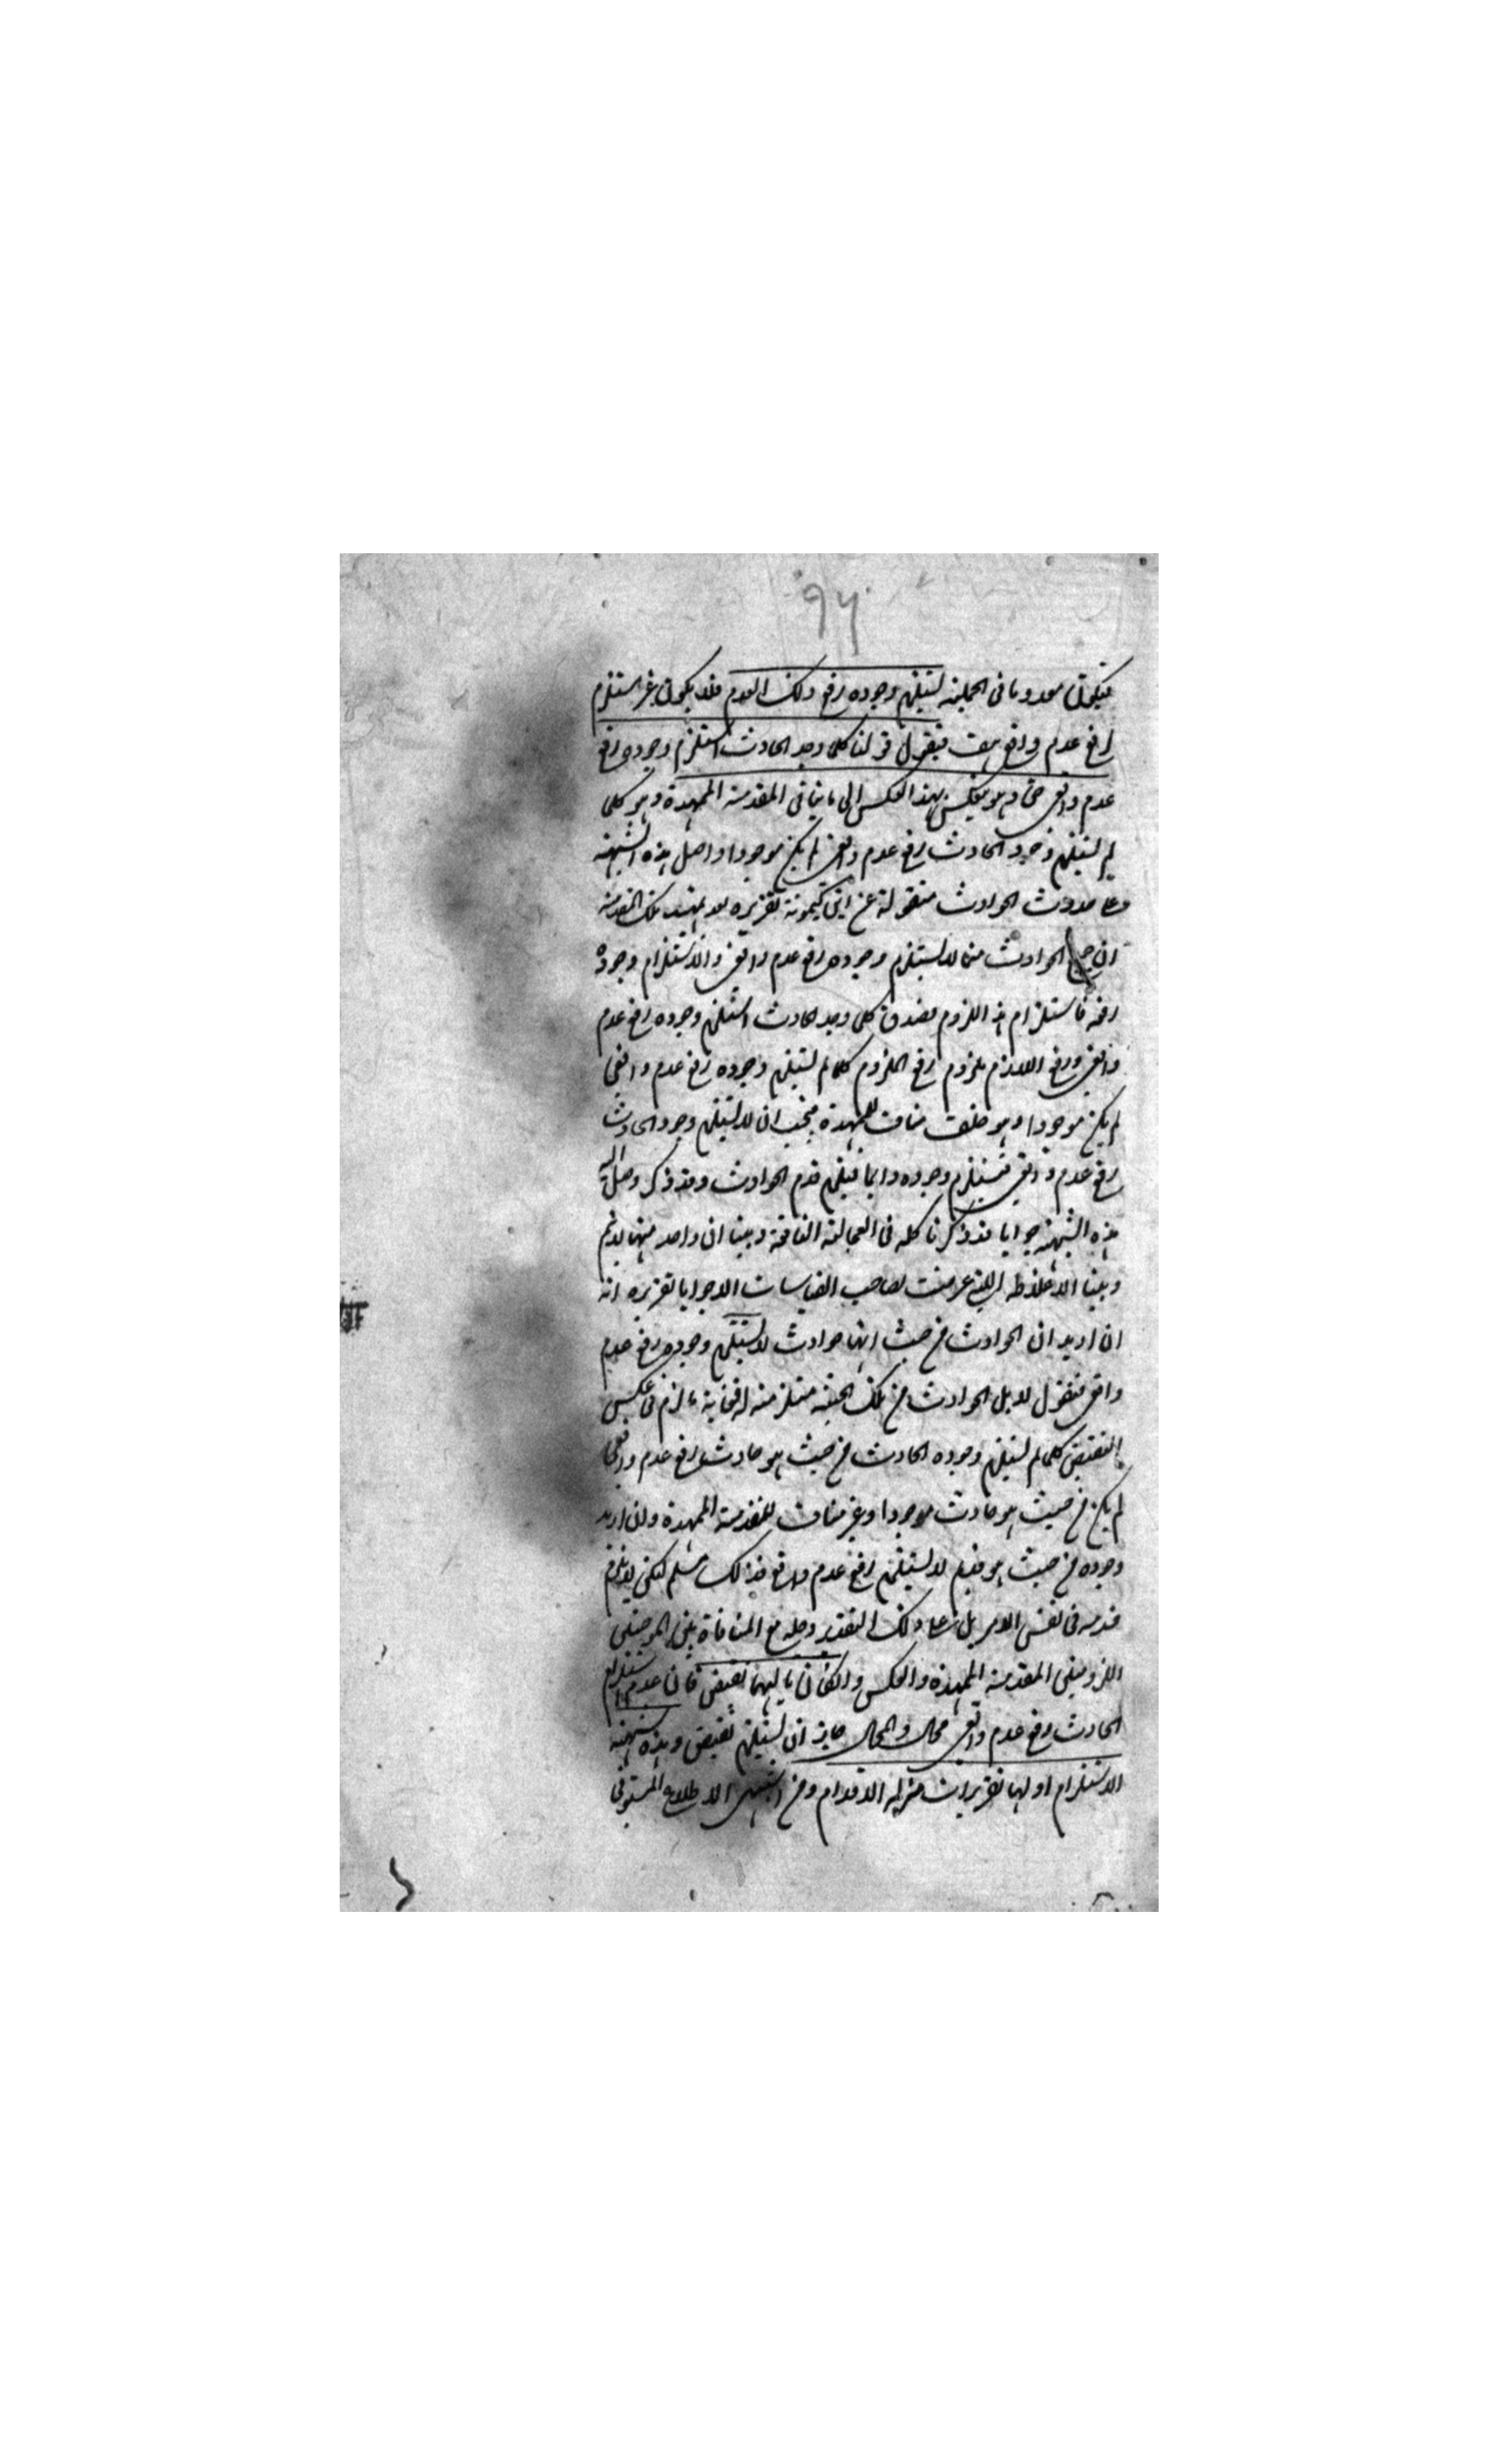 ٩٦
فيكون معدوما فى الجملية يستلزم وجوده رفع ذلك العدم فلا يكون غير مستلزم
رفع عدم واقع هف فنقول قولنا كلما وجد الحادث استلزم وجوده رفع
عدم واقعى حق وهو ينعكس بهذا العكس الى ما ينافى المقدمة الممهدة وهو كلما
لم يستلزم وجود الحادث رفع عدم واقعى لم يكن موجودا واصل هذه الشبهة
على حدوث الحوادث منقولة عن ابن كمونة تقريره بعد تمهيد تلك المقدمة
ان جميع الحوادث مما لا يستلزم وجوده رفع عدم واقعى والا استلزام وجوده
رفعه فاستلزام هذا اللزوم يصدق كلما وجد الحادث استلزم وجوده رفع عدم
واقعى ورفع اللازم ملزوم رفع الملزوم كلما لم يستلزم وجوده رفع عدم واقعى
لم يكن موجودا وهو خلف مناف للممهدة فيجب ان لا يستلزم وجود الحادث
رفع عدم واقعى فيستلزم وجوده دايما فيلزم قدم الحوادث وقد ذكر
هذه الشبهة جوابا قد ذكرنا كله فى العجالة النافعة وبينا ان واحد منها لا يتم
وبينا الاغلوطة التى عرضت لصاحب القياسات الا جوابا تقريره انه
ان اريد ان الحوادث من حيث انها حوادث لا يستلزم وجوده رفع عدم
واقع فنقول لا بل الحوادث من تلك الحيثية مستلزمة له فغاية ما لزم فى عكس
النقيض كلما لم يستلزم وجوده الحادث من حيث هو حادث رفع عدم واقعى
لم يكن من حيث هو حادث موجودا وغير مناف للمقدمة الممهدة وان اريد
وجوده من حيث هو قديم لا يستلزم رفع عدم واقع فذلك مسلم لكن لا يلزم
قدمه فى نفس الامر بل على ذلك التقدير وحله مع المنافاة بين الموجبتين
اللزوميتين المقدمة الممهدة والعكس وان كان تاليهما نقيض فان عدم استلزام
الحادث رفع عدم واقعى محال والمحال جايز ان يستلزم نقيض وهذه شبهة
الاستلزام اولها تقريرات مزلة الاقدام ومن اشتهى الاطلاع المستوفى